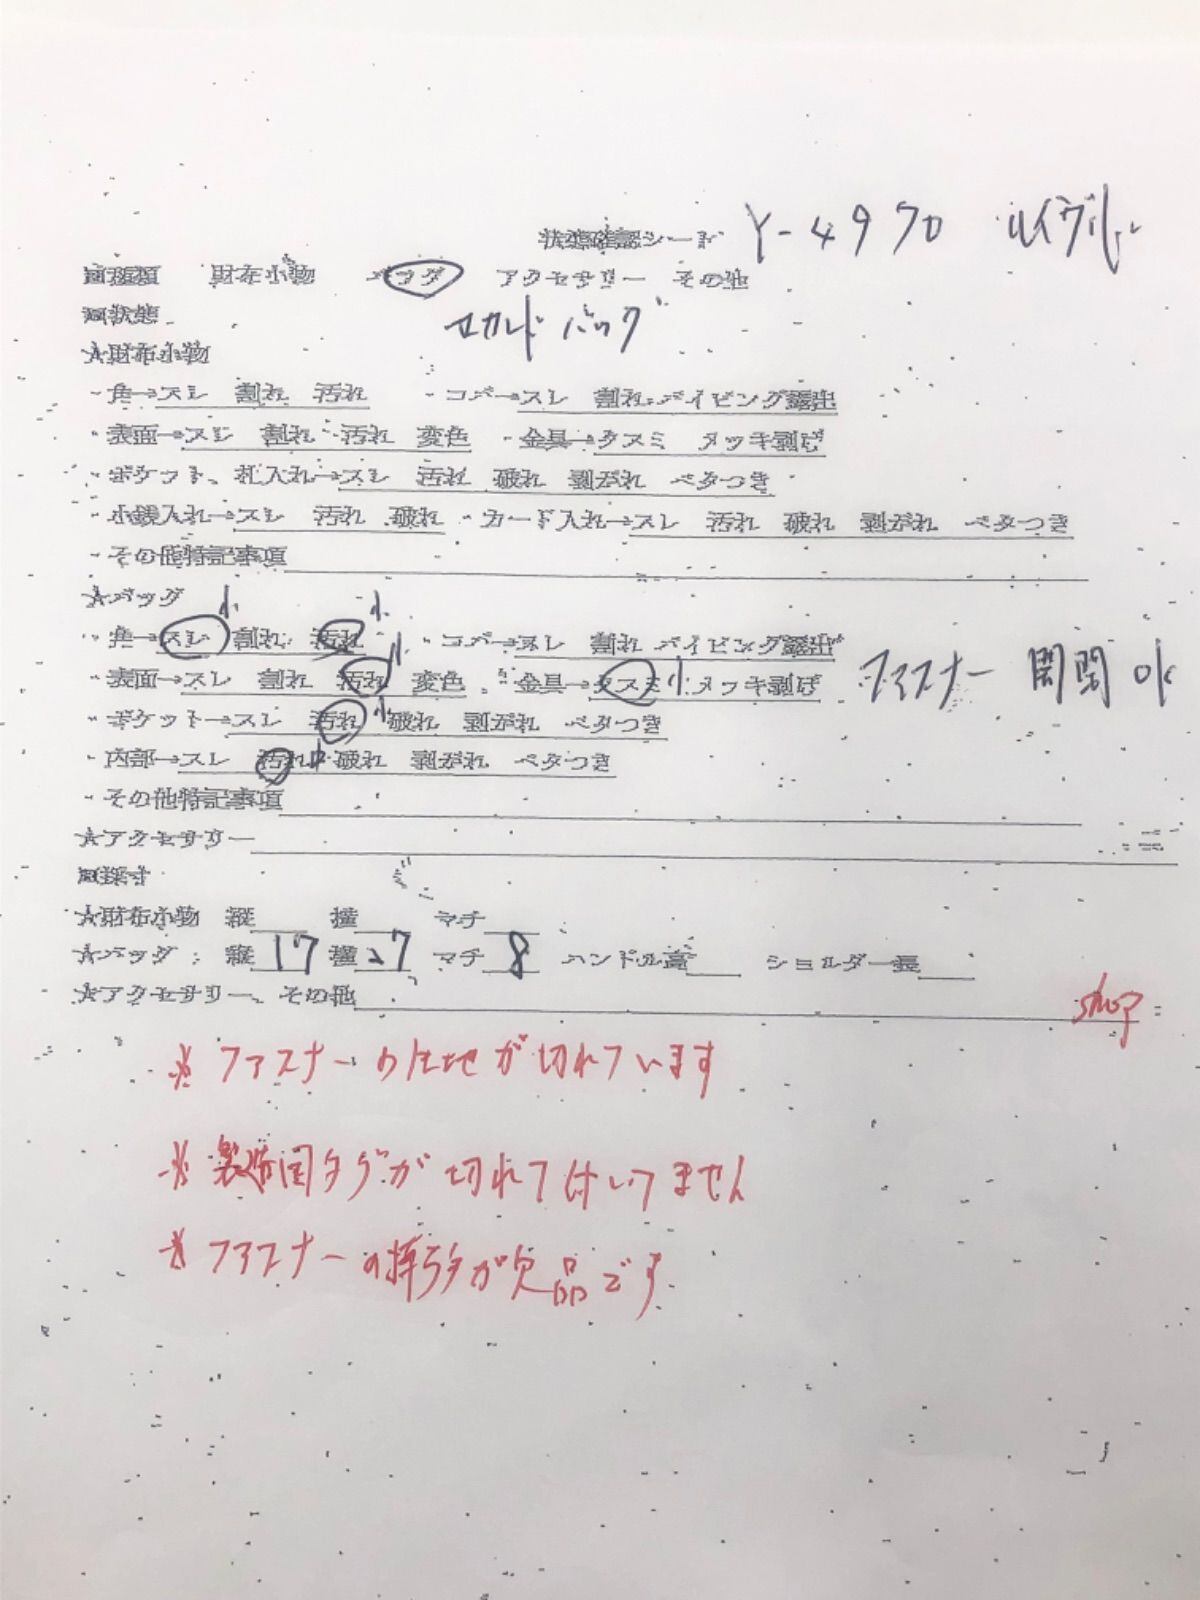 状態確認シート Y-4970 ルイヴィトン
□種類 財布小物 バッグ アクセサリー その他
□状態 セカンドバッグ
★財布小物
・角→スレ 割れ 汚れ ・コバ→スレ 割れ パイピング露出
・表面→スレ 割れ 汚れ 変色 ・金具→クスミ メッキ剥げ
・ポケット、札入れ→スレ 汚れ 破れ 剥がれ ベタつき
・小銭入れ→スレ 汚れ 破れ ・カード入れ→スレ 汚れ 破れ 剥がれ ベタつき
・その他特記事項
★バッグ
・角→スレ小 割れ 汚れ小 ・コバ→スレ 割れ パイピング露出
・表面→スレ 割れ 汚れ小 変色 ・金具→クスミ小 メッキ剥げ ファスナー開閉OK
・ポケット→スレ 汚れ小 破れ 剥がれ ベタつき
・内部→スレ 汚れ中 破れ 剥がれ ベタつき
・その他特記事項
★アクセサリー
□採寸
★財布小物 縦 横 マチ
★バッグ:縦 17 横 27 マチ 8 ハンドル高 ショルダー長
★アクセサリー、その他
shop
※ファスナーの生地が切れています
※製造国タグが切れて付いてません
※ファスナーの持手が欠品です